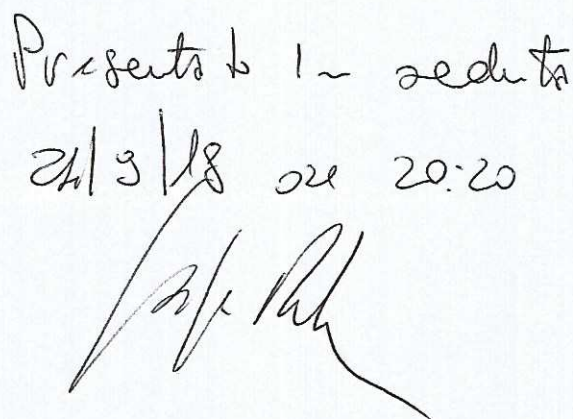 Presentato in seduta
24/9/18 ore 20:20